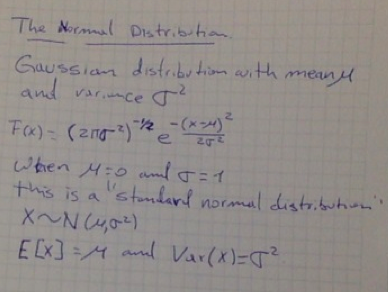 The Normal Distribution
Gaussian distribution with mean μ
and variance σ²
F(x) = (2πσ²)^-1/2 e^-(x-μ)²/2σ²
When μ=0 and σ=1
this is a "standard normal distribution"
X~N(μ,σ²)
E[X]=μ and Var(X)=σ²